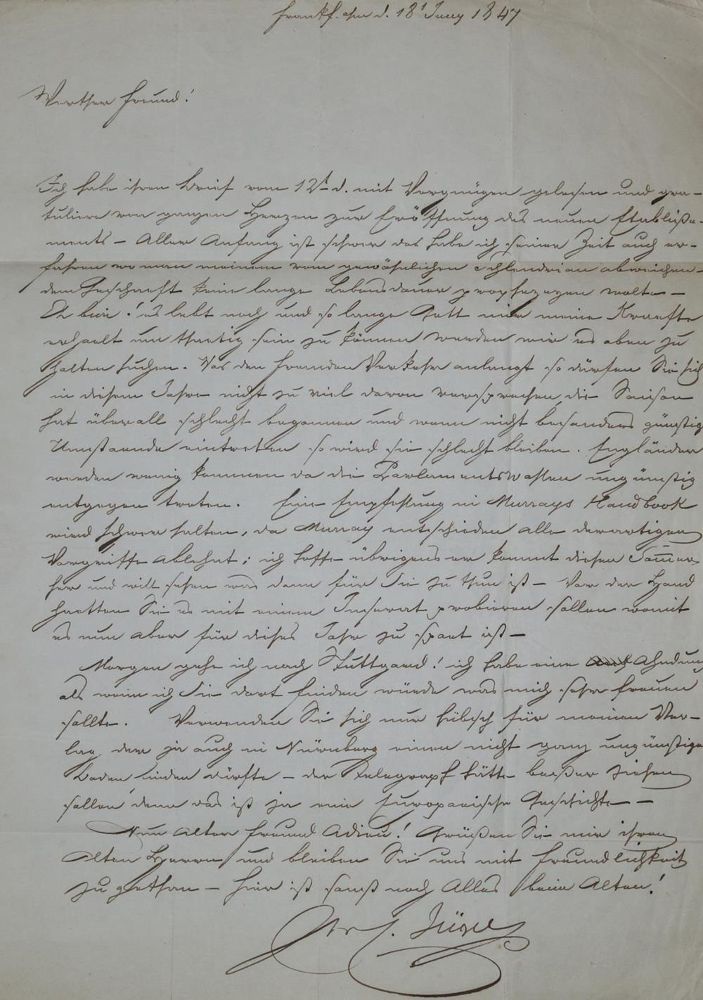 Frankf. a/m d. 18t Juny 1847
Werther Freund!
Ich habe ihren Brief vom 12t d. mit Vergnügen gelesen und gra-
tulire von ganzen Herzen zur Eröffnung des neuen Etabliße-
ments – Aller Anfang ist schwer das habe ich seiner Zeit auch er-
fahren wo man meinem vom gewöhnlichen Schlendrian abweichen-
den Geschaeft keine lange Lebensdauer prophezeyen wollte –
Eh bien! es lebt noch und so lange Gott mir meine Kraefte
erhaelt um thaetig sein zu können werden wir es oben zu
halten suchen. Was den Fremden Verkehr anlangt so dürfen Sie sich
in diesem Jahre nicht zu viel davon versprechen die Saison
hat überall schlecht begonnen und wenn nicht besonders günstige
Umstaende eintreten so wird sie schlecht bleiben. Engländer
werden wenig kommen da die Parlamentswahlen ungünstig
entgegen treten. Eine Empfehlung in Murrays Handbook
wird schwer halten, da Murray entschieden alle derartigen
ablehnt; ich hoffe übrigens er kommt diesen Sommer
her und will sehen was dann für Sie zu thun ist – Vor der Hand
haetten Sie es mit einem Inserat probieren sollen womit
es nun aber für dieses Jahr zu spaet ist –
Morgen gehe ich nach Stuttgard! ich habe eine Ahndung
als wenn ich Sie dort finden würde was mich sehr freuen
sollte. Verwenden Sie sich nur hübsch für meinen Ver-
lag der ja auch in Nürnberg einen nicht ganz ungünstigen
Boden finden dürfte – der Telegraph hätte besser ziehen
sollen denn das ist ja eine Europaeische Geschichte –
Nun alter Freund Adieu! Grüßen Sie mir ihren
alten Herrn und bleiben Sie uns mit Freundlichkeit
zugethan – hier ist sonst noch Alles beim Alten!
C. Jügel